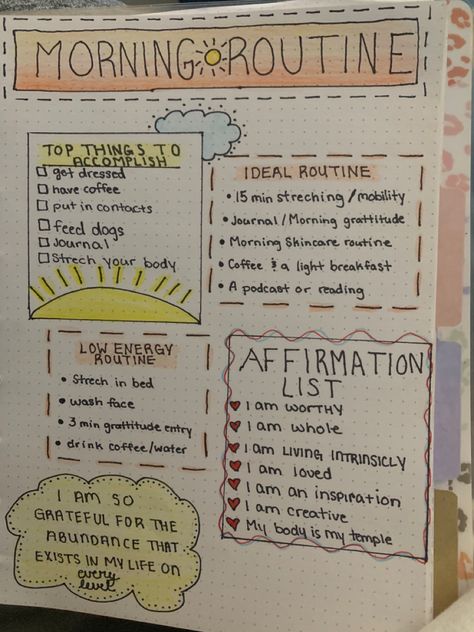 MORNING ROUTINE
TOP THINGS TO
ACCOMPLISH
get dressed
have coffee
put in contacts
feed dogs
Journal
Strech your body
IDEAL ROUTINE
• 15 min streching/mobility
• Journal/Morning grattitude
• Morning Skincare routine
• Coffee & a light breakfast
• A podcast or reading
LOW ENERGY
ROUTINE
• Strech in bed
• wash face
• 3 min grattitude entry
• drink coffee/water
AFFIRMATION
LIST
I am WORTHY
I am whole
I am LIVING INTRINSICLY
I am loved
I am an inspiration
I am creative
My body is my temple
I AM SO
GRATEFUL FOR THE
ABUNDANCE THAT
EXISTS IN MY LIFE ON
every
level